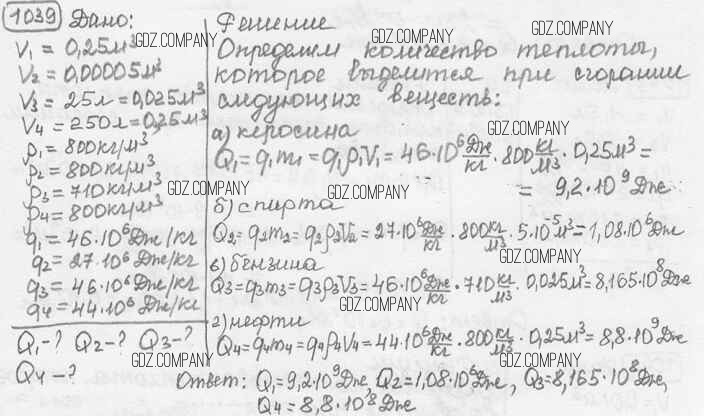 1039 Дано:
V₁ = 0,25м³
V₂ = 0,00005м³
V₃ = 25л = 0,025м³
V₄ = 250л = 0,25м³
ρ₁ = 800кг/м³
ρ₂ = 800кг/м³
ρ₃ = 710кг/м³
ρ₄ = 800кг/м³
q₁ = 46·10⁶Дж/кг
q₂ = 27·10⁶Дж/кг
q₃ = 46·10⁶Дж/кг
q₄ = 44·10⁶Дж/кг
Q₁-? Q₂-? Q₃-?
Q₄-?
Решение
Определим количество теплоты,
которое выделится при сгорании
следующих веществ:
а) керосина
Q₁ = q₁m₁ = q₁ρ₁V₁ = 46·10⁶ Дж/кг · 800 кг/м³ · 0,25м³ =
= 9,2·10⁹ Дж
б) спирта
Q₂ = q₂m₂ = q₂ρ₂V₂ = 27·10⁶ Дж/кг · 800 кг/м³ · 5·10⁻⁵м³ = 1,08·10⁶Дж
в) бензина
Q₃ = q₃m₃ = q₃ρ₃V₃ = 46·10⁶ Дж/кг · 710 кг/м³ · 0,025м³ = 8,165·10⁸Дж
г) нефти
Q₄ = q₄m₄ = q₄ρ₄V₄ = 44·10⁶ Дж/кг · 800 кг/м³ · 0,25м³ = 8,8·10⁹Дж
Ответ: Q₁ = 9,2·10⁹Дж Q₂ = 1,08·10⁶Дж, Q₃ = 8,165·10⁸Дж,
Q₄ = 8,8·10⁹Дж
GDZ.COMPANY
GDZ.COMPANY
GDZ.COMPANY
GDZ.COMPANY
GDZ.COMPANY
GDZ.COMPANY
GDZ.COMPANY
GDZ.COMPANY
GDZ.COMPANY
GDZ.COMPANY
GDZ.COMPANY
GDZ.COMPANY